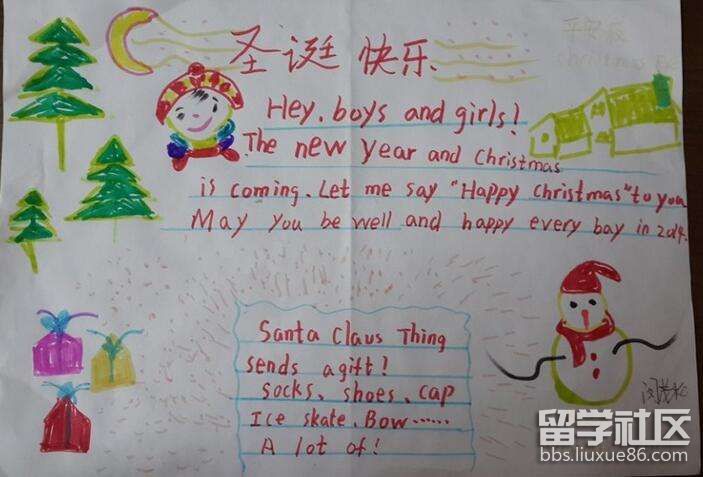 圣诞快乐
平安夜
christmas
Hey, boys and girls!
The new year and christmas
is coming. Let me say "Happy christmas" to you
May you be well and happy every bay in 2014.
Santa Claus Thing
sends a gift!
socks、shoes、cap
Ice skate、Bow……
A lot of!
留学社区
bbs.liuxue86.com